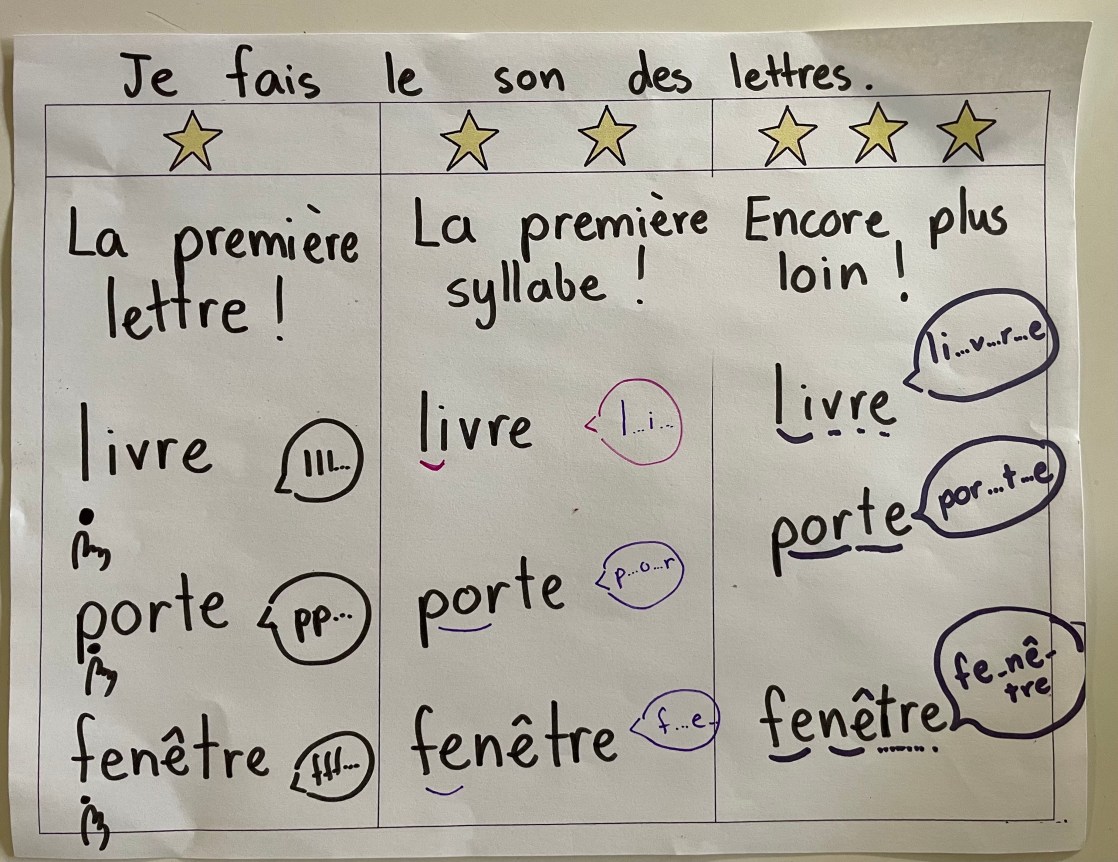 Je fais le son des lettres.
La première
lettre !
livre
lll...
porte
pp...
fenêtre
fff...
La première
syllabe !
livre
l...i...
porte
p...o...r
fenêtre
f...e..
Encore plus
loin !
livre
li...v...r...e
porte
por...t...e
fenêtre
fe..nê-
tre